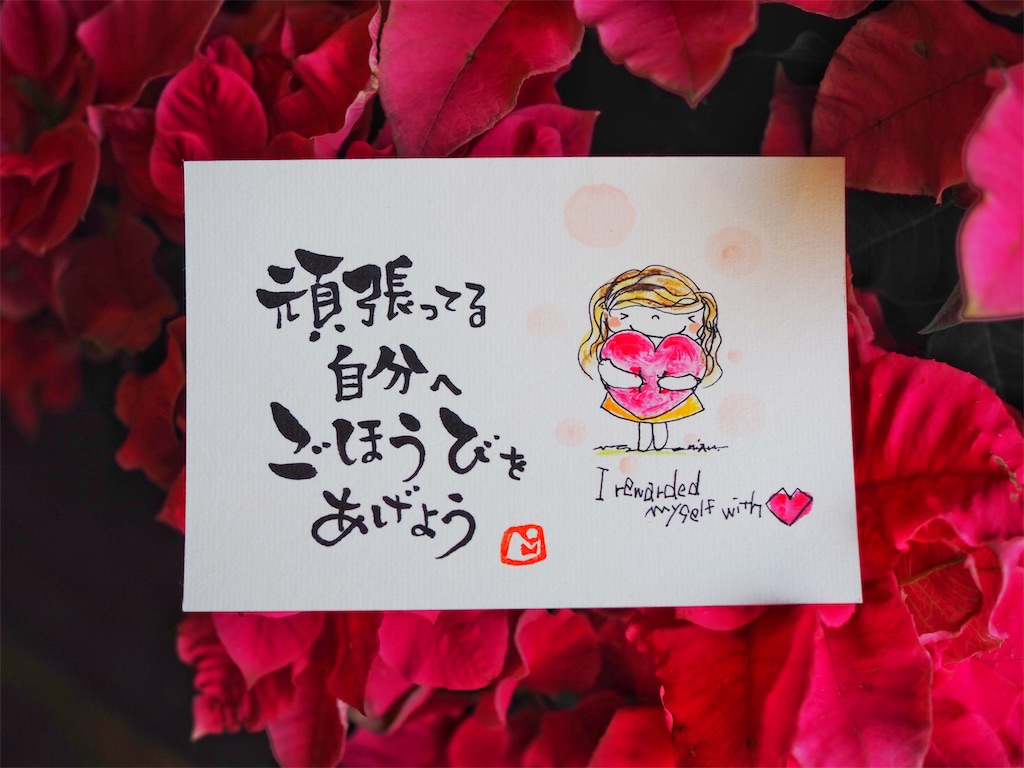 頑張ってる
自分へ
ごほうびを
あげよう
I rewarded
myself with